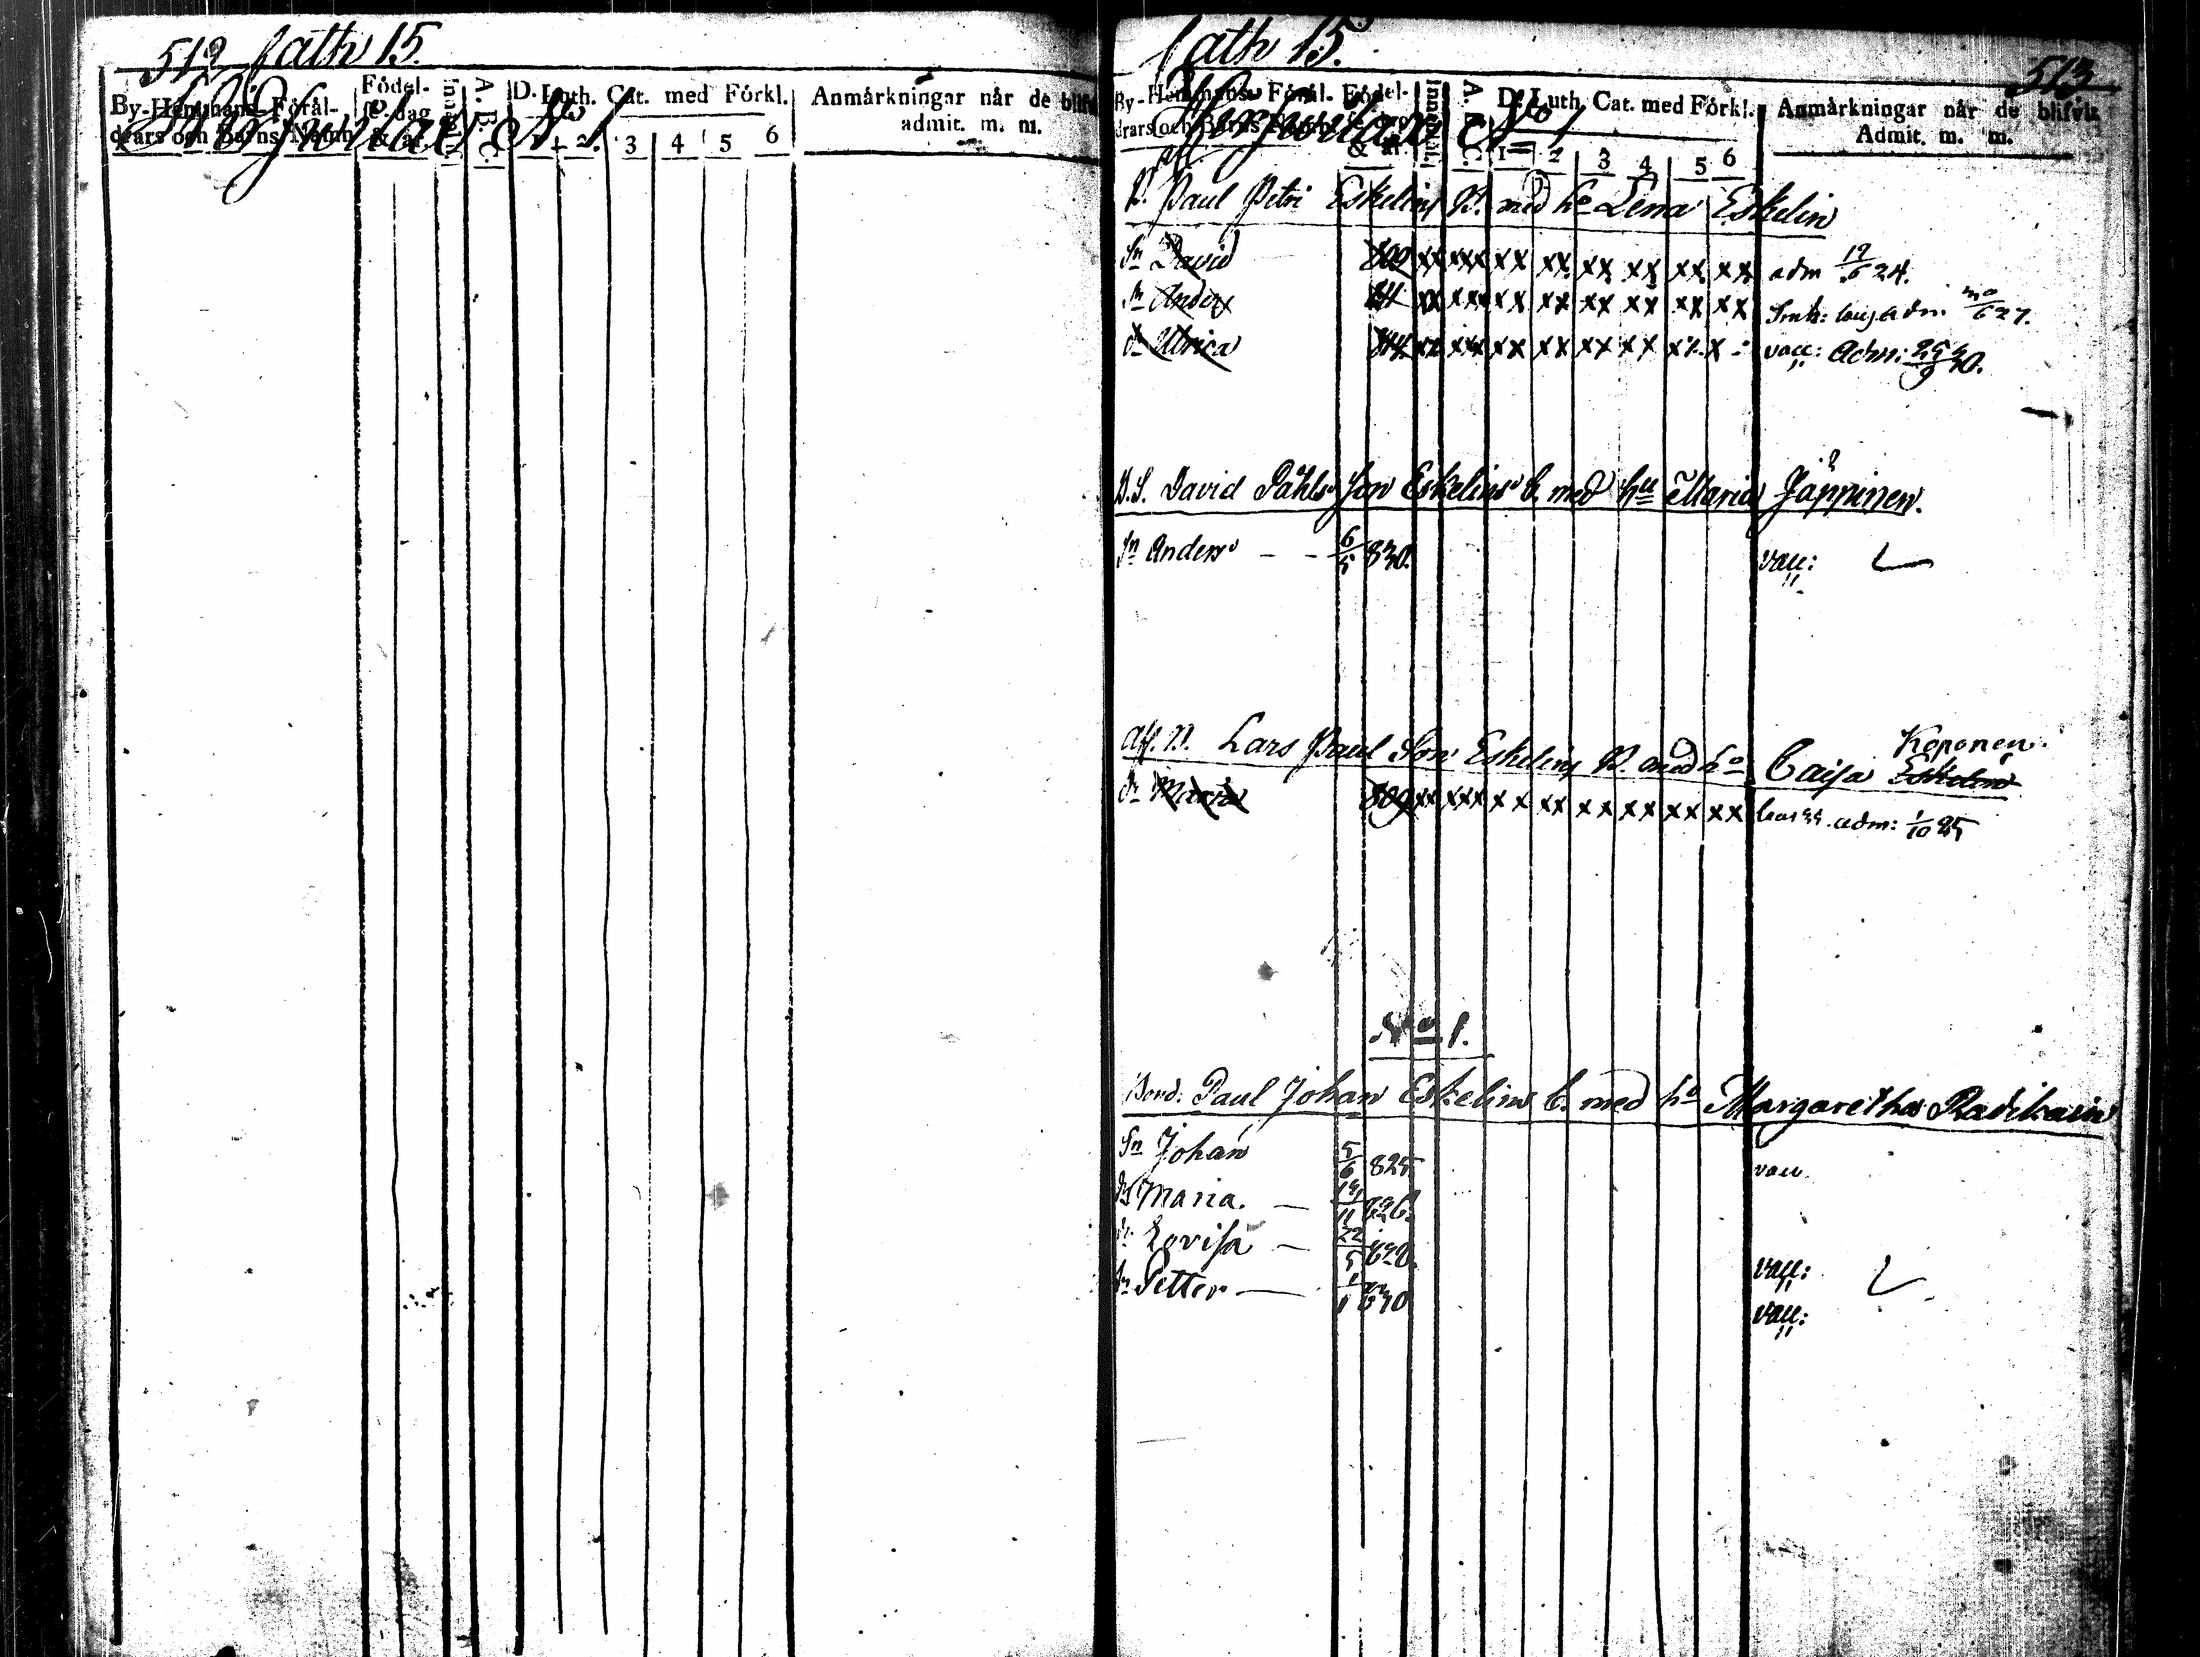 512 Cath 15.
By-Hemmans, Föräl-
drars och Barns Namn
Födel-
se dag
& år.
A. B. C.
D. Luth. Cat. med Förkl.
1 2 3 4 5 6
Anmärkningar når de blifvit
admit. m. m.
No 1.
Cath 15.
513
By-Hemmans Föräl-
drars och Barns
Födel-
& år.
A. B. C.
D. Luth. Cat. med Förkl.
1 2 3 4 5 6
Anmärkningar når de blifvit
Admit. m. m.
No 1
B. Paul Petri Eskelins B. med ho Lena Eskelin
Sn David 809 xx xxx xx xx xx xx xx xx adm 19/6 24.
Sn Anders xx xxx xx xx xx xx xx xx adm. 27.
dr Ulrica 814 xx xxx xx xx xx xx vacc: Adm: 30.
B.S. David Påhls Son Eskelins b. med hu Maria Jäppinen.
Sn Anders - - 6/5 830. vacc:
Aff. B. Lars Paul Son Eskelins B. med ho Caisa Eskelin Koponen.
dr Maria 809 xx xxx xx xx xx xx xx xx adm: 1/10 25
No 1.
Bond: Paul Johan Eskelins b. med ho Margaretha Radikain
Sn Johan 5/6 825 vacc.
dr Maria. — 19/11 826.
dr Lovisa — 22/5 828. vacc:
Sn Petter — 1/1 830 vacc: